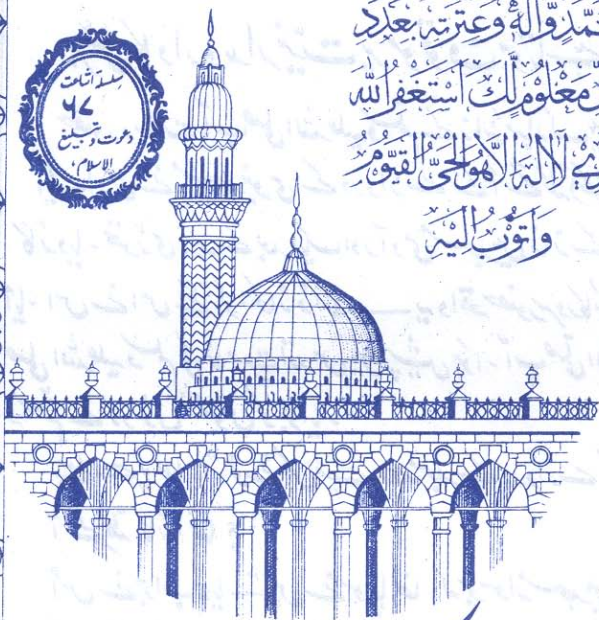 سلسلۂ اشاعت
۶۷
دعوت و تبلیغ
الاسلام،
وَّاٰلِهٖ وَعِتْرَتِهٖ بِعَدَدِ
مَعْلُوْمٍ لَّكَ اَسْتَغْفِرُ اللّٰهَ
لَآ اِلٰهَ اِلَّا هُوَ الْحَيُّ الْقَيُّوْمُ
وَاَتُوْبُ اِلَيْهِ